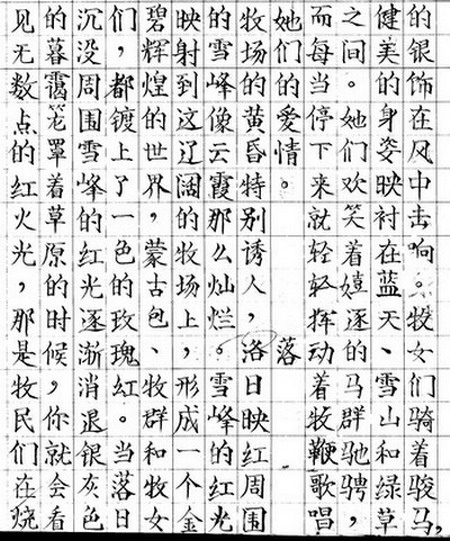 的银饰在风中击响。牧女们骑着骏马，
健美的身姿映衬在蓝天、雪山和绿草
之间。她们欢笑着嬉逐的马群驰骋，
而每当停下来就轻轻挥动着牧鞭歌唱
她们的爱情。落
牧场的黄昏特别诱人，洛日映红周围
的雪峰像云霞那么灿烂。雪峰的红光
映射到这辽阔的牧场上，形成一个金
碧辉煌的世界，蒙古包、牧群和牧女
们，都镀上了一色的玫瑰红。当落日
沉没，周围雪峰的红光逐渐消退银灰色
的暮霭笼罩着草原的时候，你就会看
见无数点的红火光，那是牧民们在烧